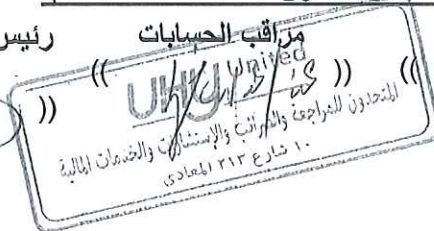 مراقب الحسابات
رئيس
(( )) (( ))
UHY United
المتحدون للمراجعة والضرائب والإستشارات والخدمات المالية
١٠ شارع ٢١٣ المعادى